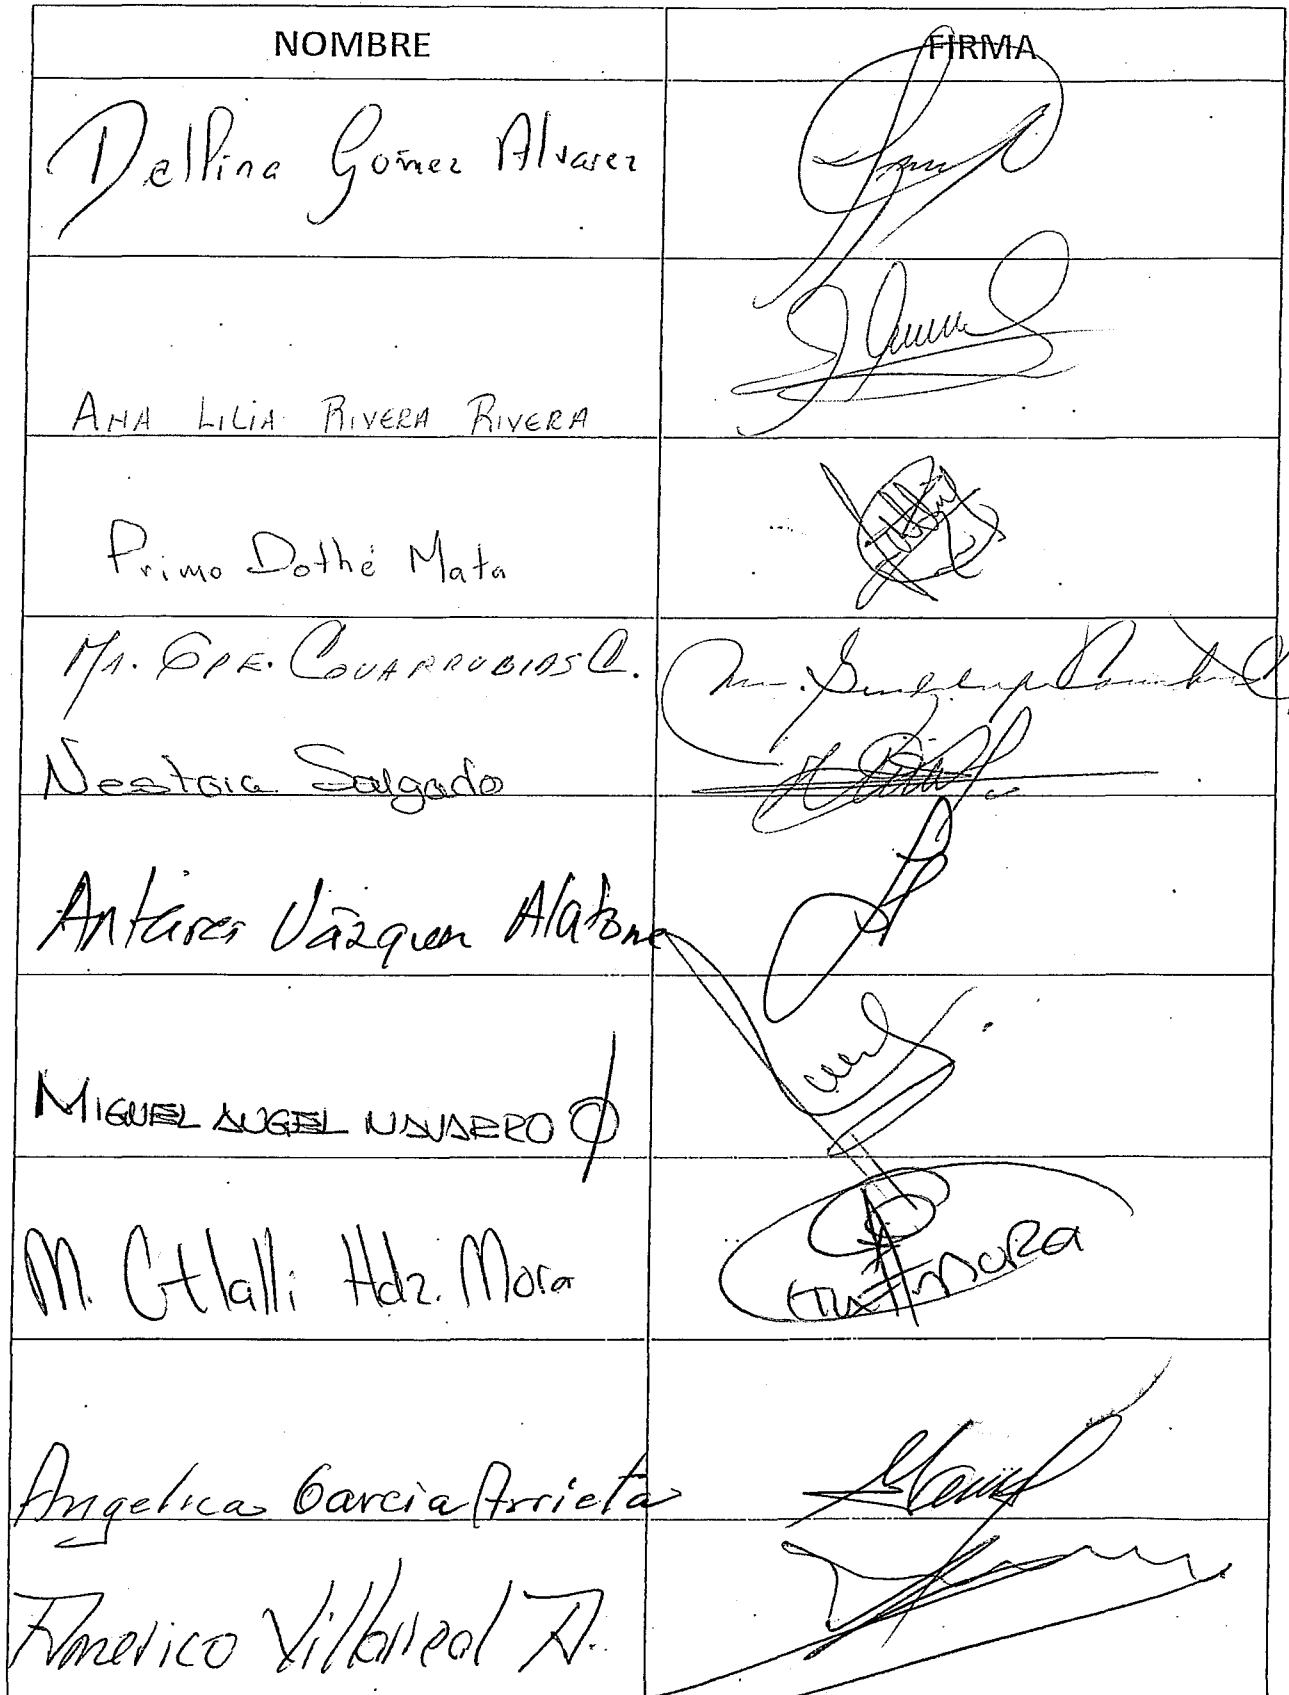 NOMBRE FIRMA
Delfina Gómez Alvarez
ANA LILIA RIVERA RIVERA
Primo Dothé Mata
MA. GPE. COVARRUBIAS C.
Nestora Salgado
Antares Vázquez Alatorre
MIGUEL ANGEL NAVARRO Q
M. Citlalli Hdz. Mora
MORA
Angelica Garcia Arrieta
Americo Villarreal A.